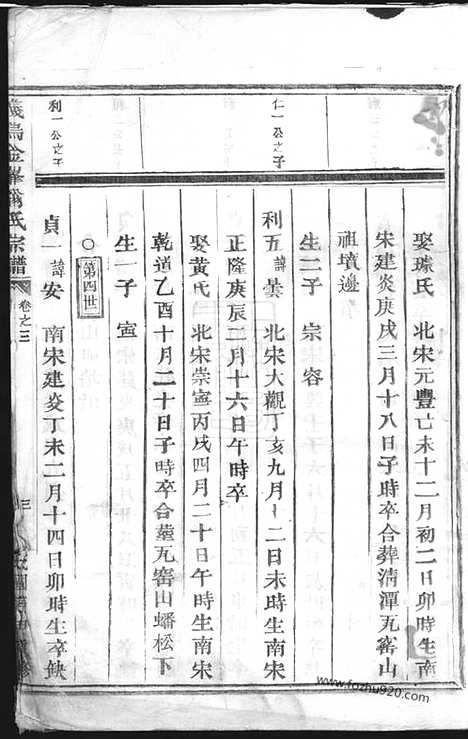 仁一公之子
利一公之子
娶璩氏　北宋元豐亡未十二月初二日卯時生南
宋建炎庚戌三月十八日子時卒合葬清潭瓦窰山
祖墳邊
生二子　宗容
利五　諱曇　北宋大觀丁亥九月十二日未時生南宋
正隆庚辰二月十六日午時卒
娶黄氏　北宋崇寧丙戌四月二十日午時生南宋
乾道乙酉十月二十日子時卒合塟瓦窰山蟠松下
生一子　寍
○　第四世
貞一　諱安　南宋建炎丁未二月十四日卯時生卒缺
氏宗譜
卷之三
三
www.fozhu920.com